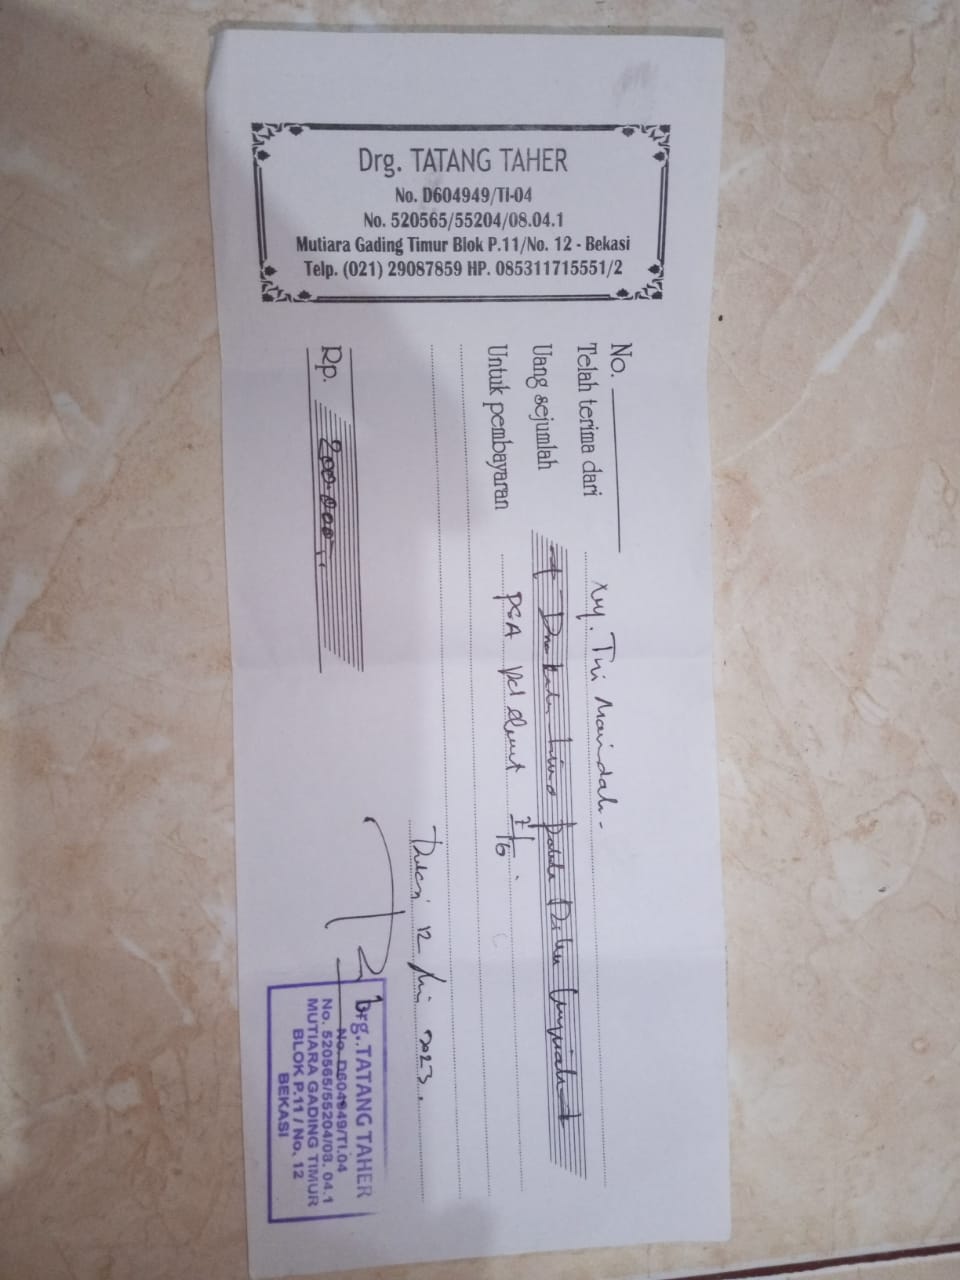 Drg. TATANG TAHER
No. D604949/TI-04
No. 520565/55204/08.04.1
Mutiara Gading Timur Blok P.11/No. 12 - Bekasi
Telp. (021) 29087859 HP. 085311715551/2
No.
Telah terima dari Tri Marindah -
Uang sejumlah
Untuk pembayaran PSA
12 2023.
Rp. 200.000,-
Drg. TATANG TAHER
No. D604949/TI.04
No. 520565/55204/08. 04.1
MUTIARA GADING TIMUR
BLOK P.11 / No. 12
BEKASI